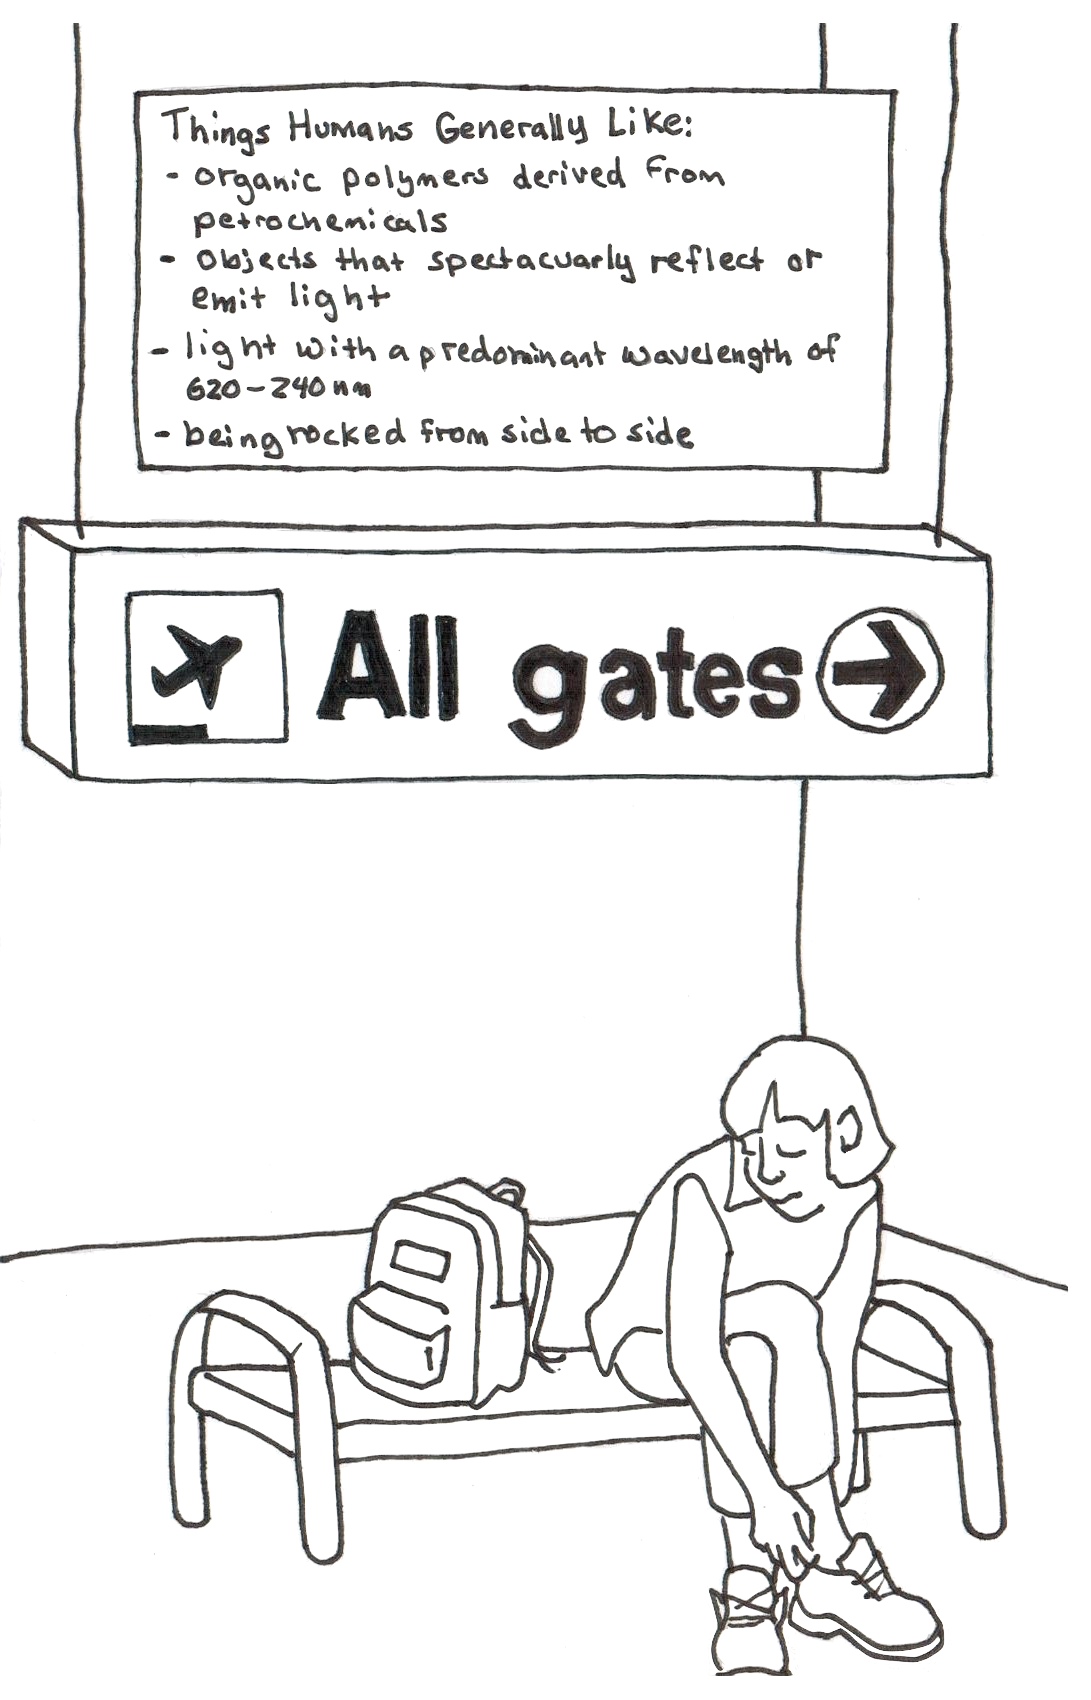 Things Humans Generally Like:
- organic polymers derived from
petrochemicals
- objects that spectacuarly reflect or
emit light
- light with a predominant wavelength of
620-240nm
- being rocked from side to side
All gates